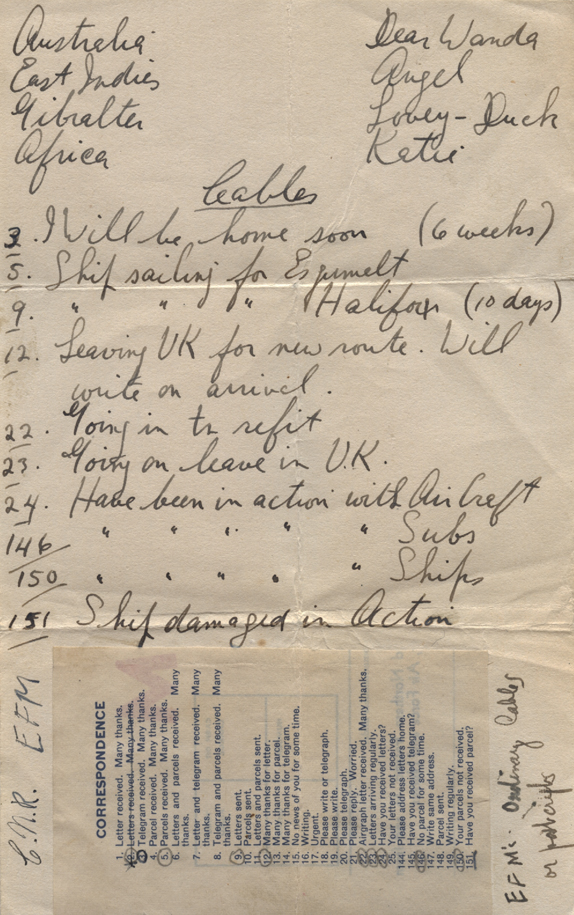 Australia Dear Wanda
East Indies Angel
Gibralter Lovey-Duck
Africa Katie
Cables
3. I Will be home soon (6 weeks)
5. Ship sailing for Esquimelt
9. " " " Halifax (10 days)
12. Leaving UK for new route. Will
write on arrival.
22. Going in tn refit
23. Going on leave in U.K.
24. Have been in action with AirCraft
146 " " " " " Subs
150 " " " " " Ships
151 Ship damaged in Action
C.N.R. EFM
CORRESPONDENCE
1. Letter received. Many thanks.
2. Letters received. Many thanks.
3. Telegram received. Many thanks.
4. Parcel received. Many thanks.
5. Parcels received. Many thanks.
6. Letters and parcels received. Many
thanks.
7. Letters and telegram received. Many
thanks.
8. Telegram and parcels received. Many
thanks.
9. Letters sent.
10. Parcels sent.
11. Letters and parcels sent.
12. Many thanks for letter.
13. Many thanks for parcel.
14. Many thanks for telegram.
15. No news of you for some time.
16. Writing.
17. Urgent.
18. Please write or telegraph.
19. Please write.
20. Please telegraph.
21. Please reply. Worried.
22. Airgraph letter received. Many thanks.
23. Letters arriving regularly.
24. Have you received letters?
25. Your letters not received.
144. Please address letters home.
145. Have you received telegram?
146. No parcels for some time.
147. Write same address.
148. Parcel sent.
149. Writing regularly.
150. Your parcels not received.
151. Have you received parcel?
EFMs. Ordinary Cables
or